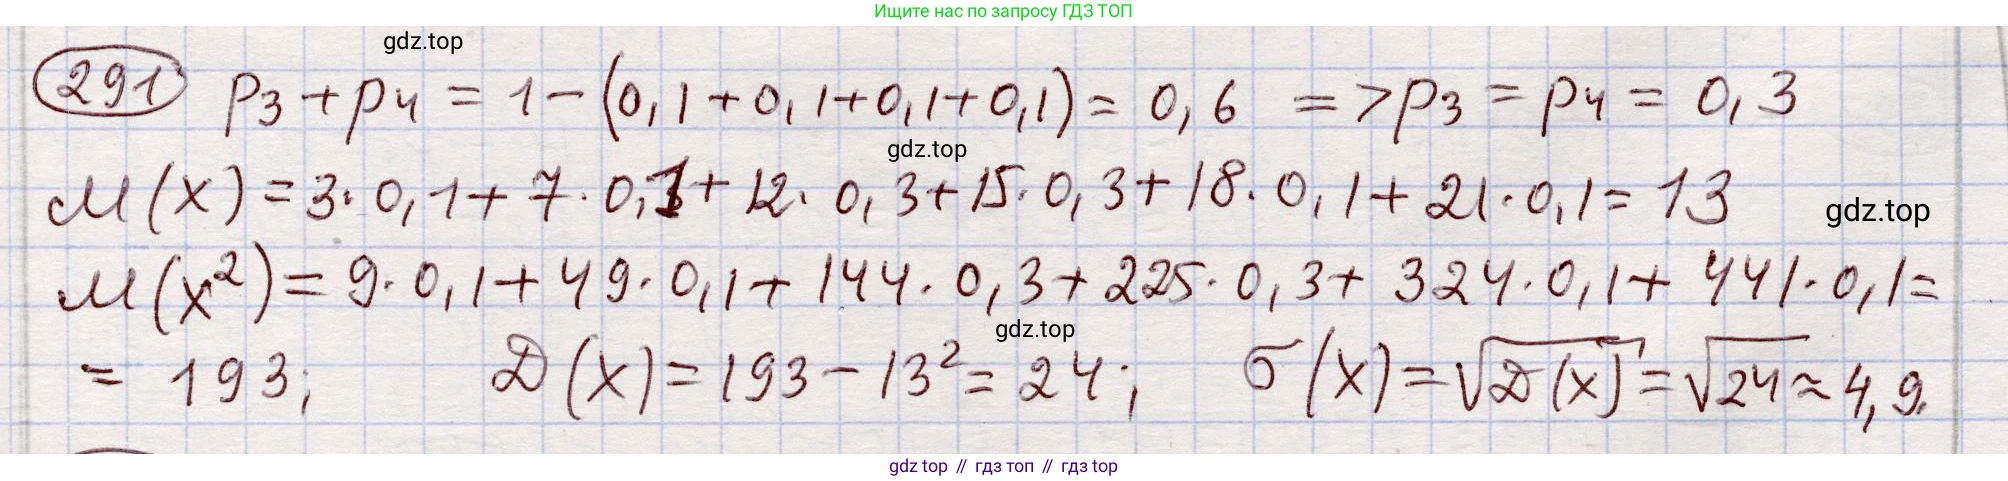 Ищите нас по запросу ГДЗ ТОП
gdz.top
291 p3 + p4 = 1 - (0,1 + 0,1 + 0,1 + 0,1) = 0,6 => p3 = p4 = 0,3
gdz.top
M(X) = 3·0,1 + 7·0,1 + 12·0,3 + 15·0,3 + 18·0,1 + 21·0,1 = 13
gdz.top
M(X²) = 9·0,1 + 49·0,1 + 144·0,3 + 225·0,3 + 324·0,1 + 441·0,1 =
gdz.top
= 193; D(X) = 193 - 13² = 24; σ(X) = √D(X) = √24 ≈ 4,9.
gdz top // гдз топ // гдз top